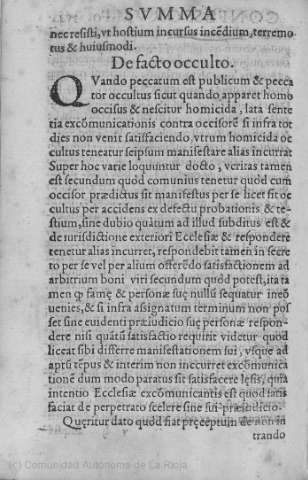 SVMMA
nec resisti, vt hostium incursus incẽdium, terremo
tus & huiusmodi.
De facto occulto.
QVando peccatum est publicum & pecca
tor occultus sicut quando apparet homo
occisus & nescitur homicida, lata sente
tia excõmunicationis contra occisorẽ si infra tot
dies non venit satisfaciendo, vtrum homicida oc
cultus teneatur seipsum manifestare alias incurrat
Super hoc varie loquuntur docto, veritas tamen
est secundum quod comunius tenetur quod cum
occisor prædictus sit manifestus per se licet sit oc
cultus per accidens ex defectu probationis & te-
stium, sine dubio quãtum ad illud subditus est &
de iurisdictione exteriori Ecclesiæ & respondere
tenetur alias incurret, respondebit tamen in secre
to per se vel per alium offerẽdo satisfactionem ad
arbitrium boni viri secundum quod potest, ita ta
men ꝙ famę & personæ suę nullũ sequatur incõ
uenies, & si infra assignatum terminum non pos
set sine euidenti præiudicio suę personæ respon-
dere nisi quãtũ satisfactio requirit videtur quod
liceat sibi differre manifestationem sui, vsque ad
aptũ tẽpus & interim non inccurret excõmunica
tionẽ dum modo paratus sit satisfacere lęsis, quia
intentio Ecclesiæ excõmunicantis est quod satis
faciat de perpetrato scelere sine sui præiudicio.
Quęritur dato quod fiat pręceptum de non in
trando
(c) Comunidad Autónoma de La Rioja